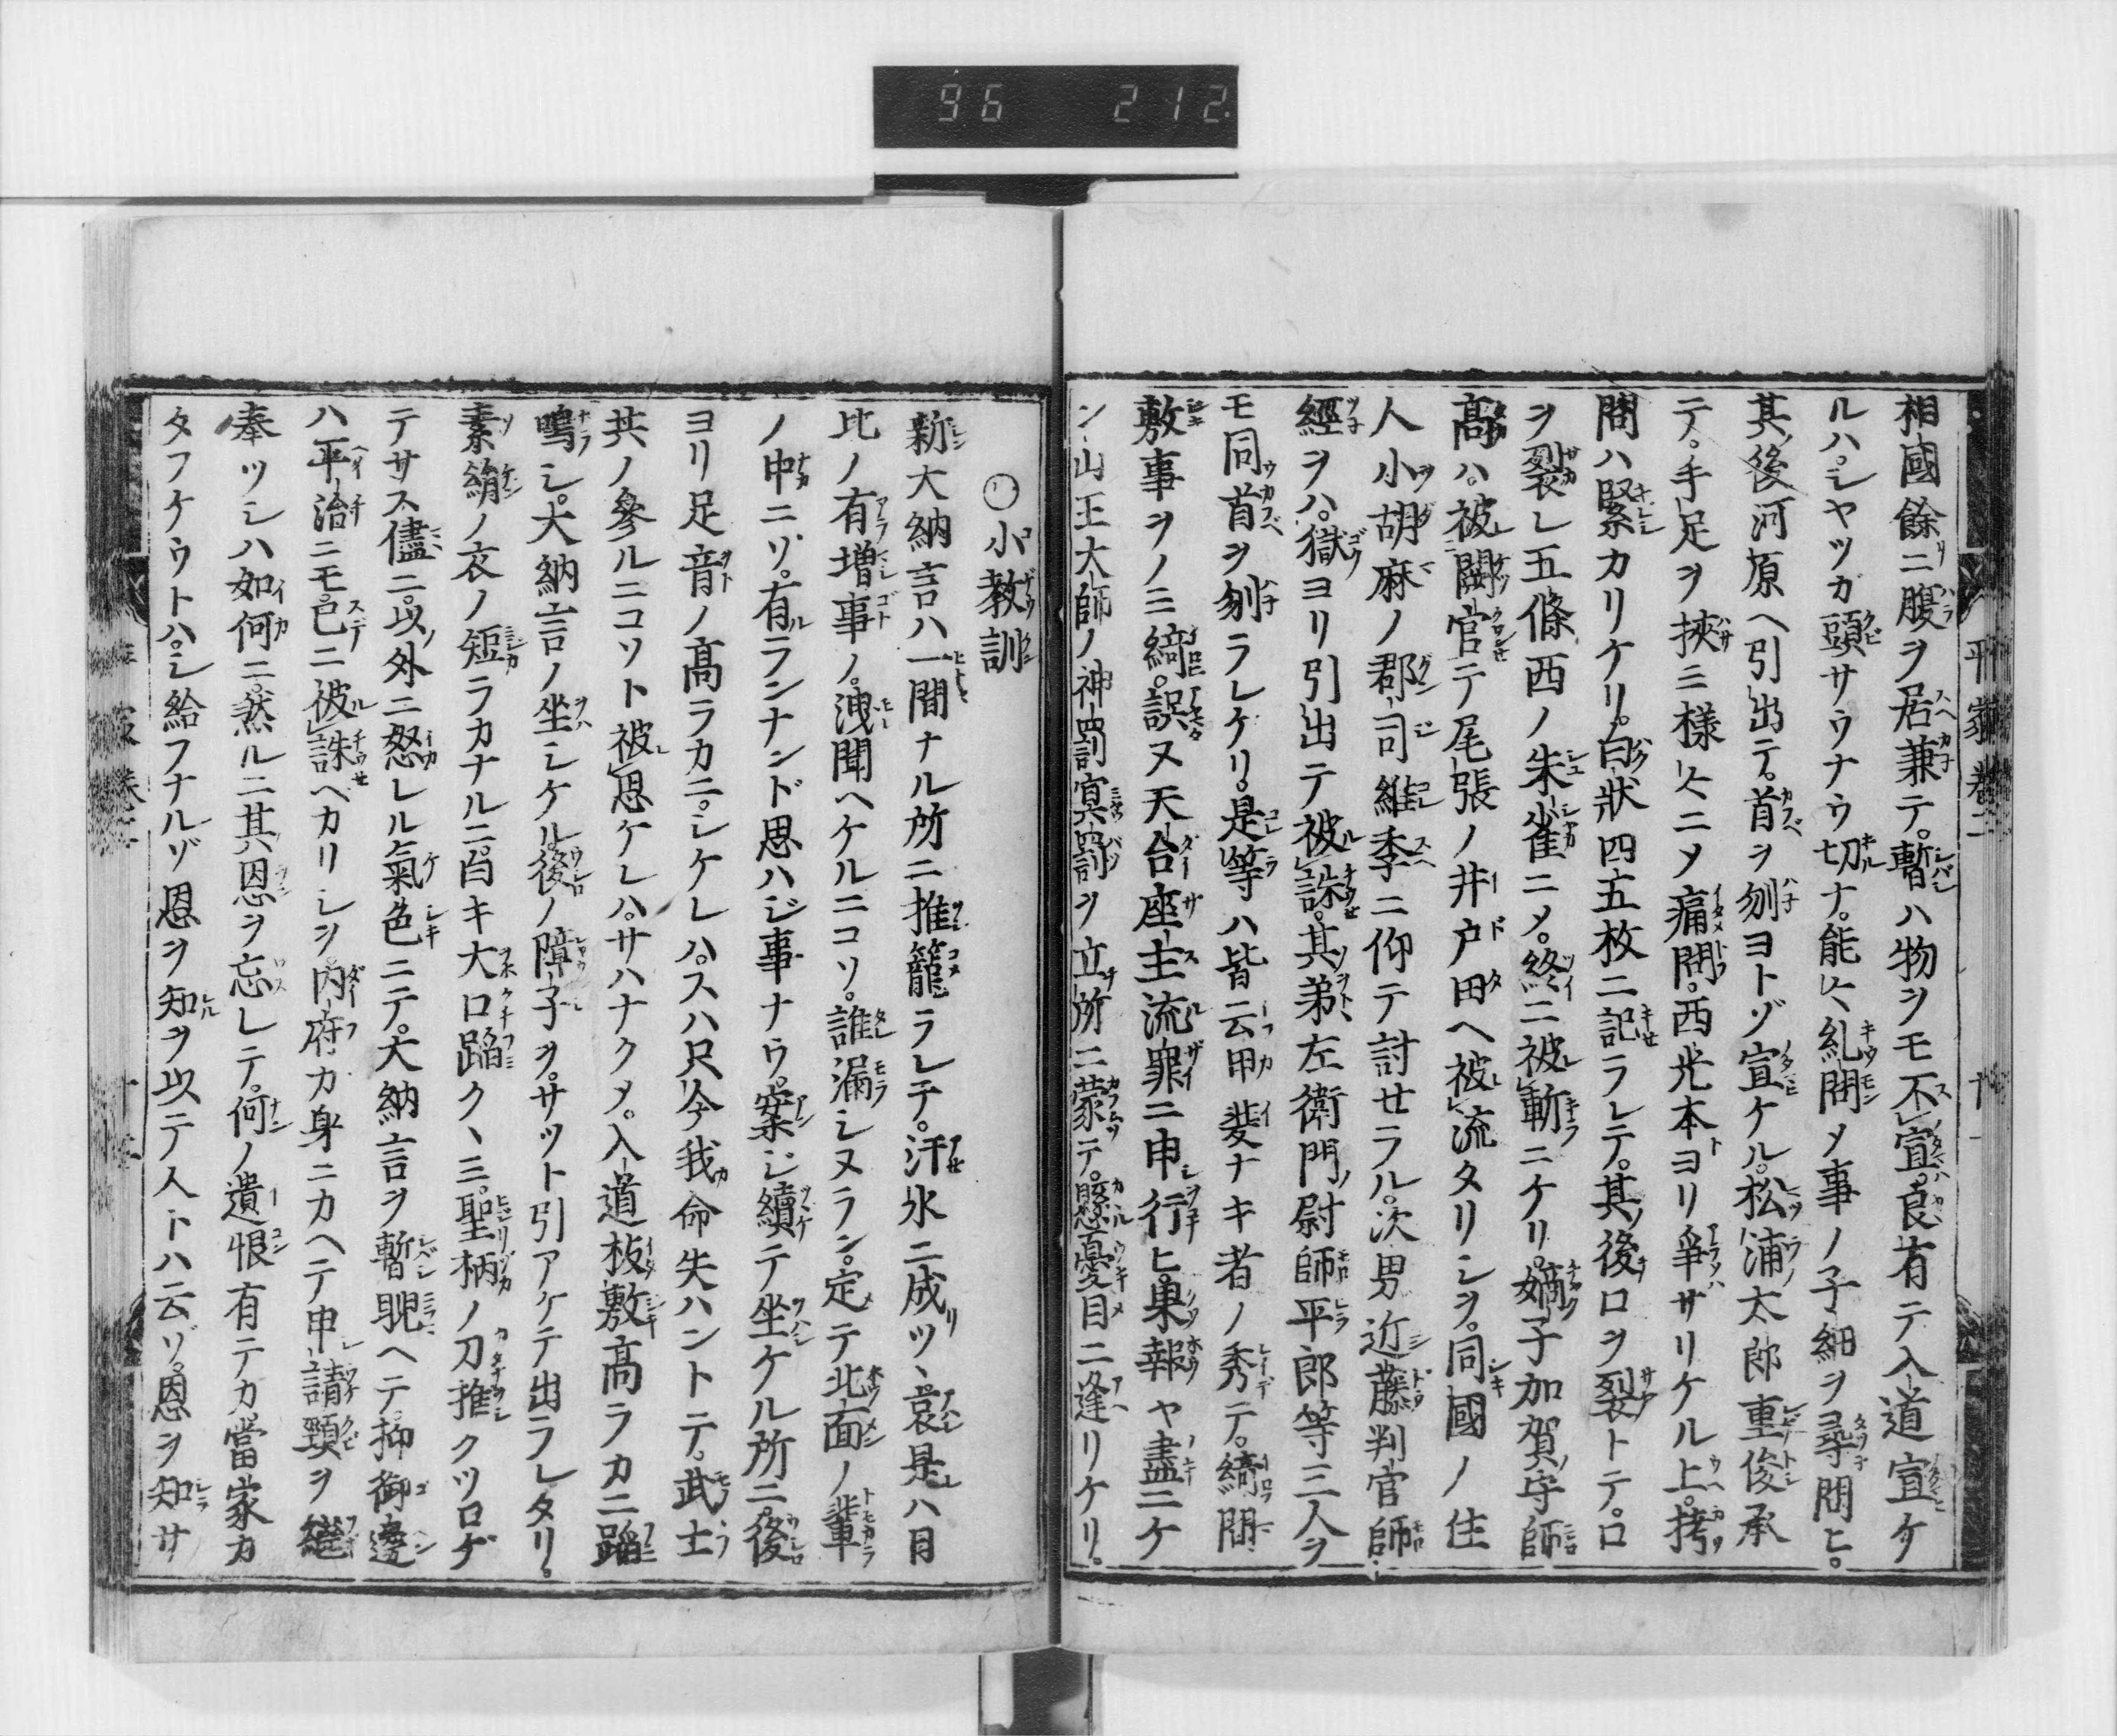 96 212
平家巻二 十一
相國餘ニ腹ヲ居兼テ。暫ハ物ヲモ不宣。良有テ入道宣ケ
ルハ。シヤツガ頸サウナウ切ナ。能〻糺問メ事ノ子細ヲヨ尋問ヒ。
其後河原ヘ引出テ。首ヲ刎ヨトゾ宣ケル。松浦太郎重俊承
テ。手足ヲ挾ミ様〻ニメ痛問。西光本ヨリ爭ザリケル上。拷
問ハ緊カリケリ。白状四五枚ニ記ラレテ。其後口ヲ裂トテ。口
ヲ裂レ五條西ノ朱雀ニメ。終ニ被斬ニケリ。嫡子加賀守師
髙ハ。被闕官テ尾張ノ井戸田ヘ被流タリシヲ。同國ノ住
人小胡麻ノ郡司維季ニ仰テ討セラル。次男近藤判官師
經ヲハ。獄ヨリ引出テ被誅。其弟左衛門尉師平郎等三人ヲ
モ同首ヲ刎ラレケリ。是等ハ皆云甲斐ナキ者ノ秀テ。綺間
敷事ヲノミ綺。誤ヌ天台座主流罪ニ申行ヒ。果報ヤ盡ニケ
ン山王大師ノ神罰冥罰ヲ立所ニ蒙テ。懸憂目ニ逢リケリ。
〇小教訓
新大納言ハ一間ナル所ニ推籠ラレテ。汗水ニ成ツヽ哀是ハ日
比ノ有増事ノ。洩聞ヘケルニコソ。誰漏シヌラン。定テ北面ノ輩
ノ中ニソ。有ランナンド思ハジ事ナウ。案ジ續テ坐ケル所ニ。後
ヨリ足音ノ髙ラカニ。シケレハ。スハ只今我命失ハントテ。武士
共ノ參ルニコソト被思ケレハ。サハナクメ。入道板敷髙ラカニ蹈
鳴シ。大納言ノ坐シケル後ノ障子ヲ。サツト引アケテ出ラレタリ。
素絹ノ衣ノ短ラカナルニ。白キ大口蹈クヽミ。聖柄ノ刀推クツロゲ
テサス儘ニ。以外ニ怒レル氣色ニテ。大納言ヲ暫睨ヘテ。抑御邊
ハ平治ニモ已ニ被誅ヘカリシヲ。内府カ身ニカヘテ申請頸ヲ継
奉ツシハ如何ニ。然ルニ其恩ヲ忘レテ。何ノ遺恨有テカ當家カ
タフケウトハ。シ給フナルゾ恩ヲ知ヲ以テ人トハ云ゾ。恩ヲ知サ